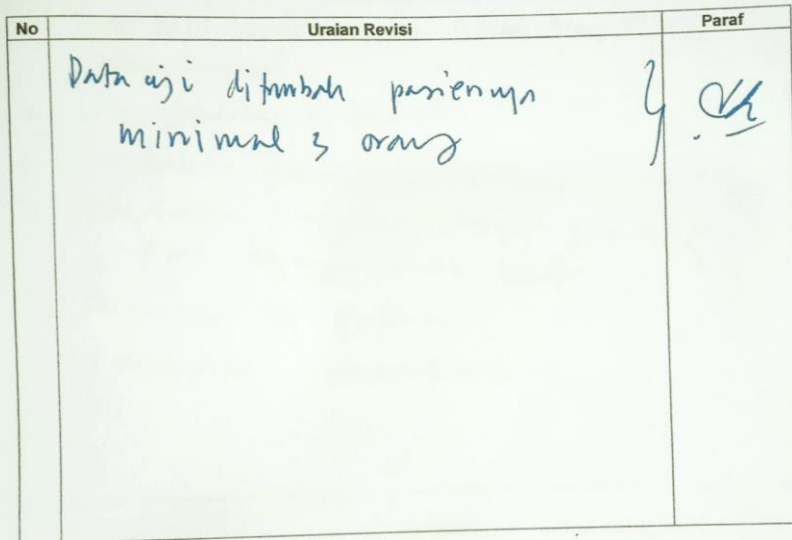 No Uraian Revisi Paraf
Data uji ditambah pasiennya
minimal 3 orang